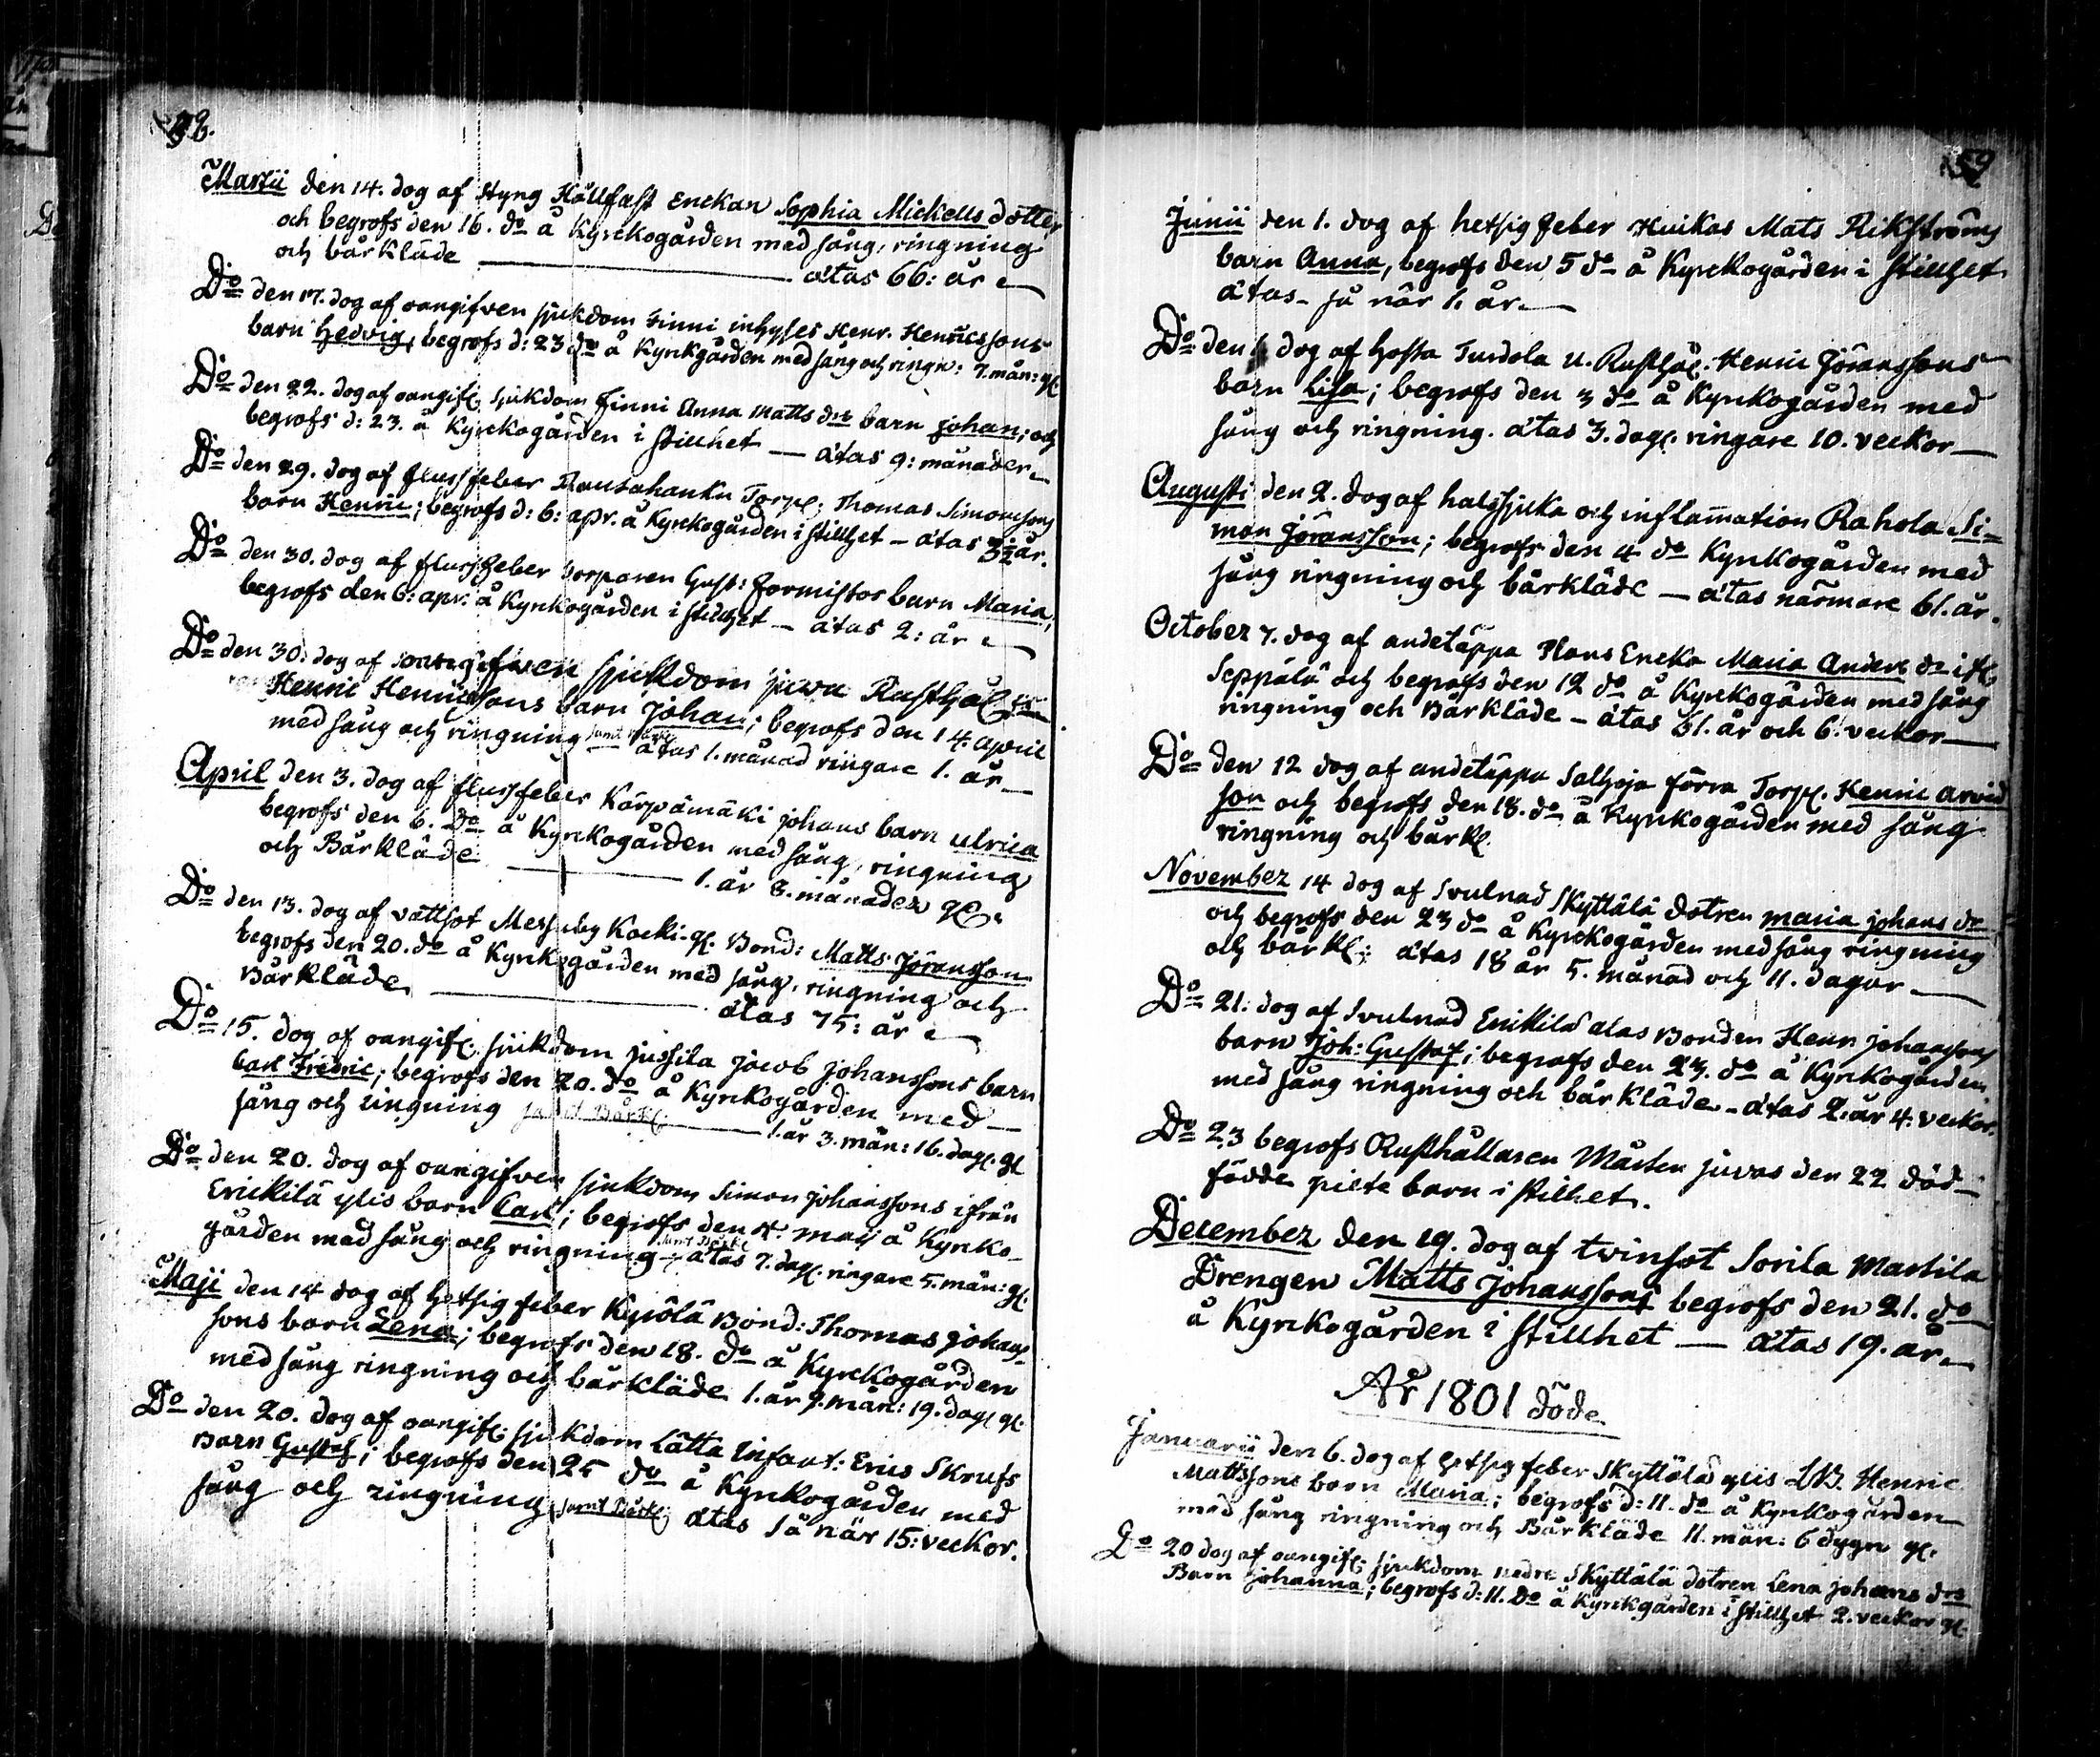 Martii den 14. dog af styng Hållfast Enckan Sophia Mickells dotter
och begrofs den 16. do å Kyrckogården med sång, ringning
och bårkläde ätas 66: år
Do den 17. dog af oangifven sjukdom Finni inhyses Henr. Henricssons
barn Hedvig, begrofs d: 23 do å Kyrkgården med sång och ringn: 7. mån: gl.
Do den 22. dog af oangif. sjukdom Finni Anna Matts dr barn Johan; och
begrofs d: 23. å Kyrckogården i stillhet — ätas 9: månader
Do den 29. dog af flussfeber Torp: Thomas Simonssons
barn Henric; begrofs d: 6: apr. å Kyrckogården i stillhet — ätas 3½ år.
Do den 30. dog af flussfeber Torparen Gust: Formistos barn Maria,
begrofs den 6: apr. å Kyrckogården i stillhet — ätas 2: år
Do den 30. dog af oangifwen sjukdom juva Rusthål
Henric Henricssons barn Johan; begrofs den 14. april
med sång och ringning samt bårkl. ätas 1. månad ringare 1. år
April den 3. dog af flussfeber Kärpämäki johans barn ulrica
begrofs den 6. do å Kyrckogården med sång, ringning
och Bårkläde 1. år 8. månader gl.
Do den 13. dog af vattsot Messuby Kocki- gl. Bond: Matts Jöransson
begrofs den 20. do å Kyrkogården med sång, ringning och
Bårkläde ätas 75: år
Do 15. dog af oangif. sjukdom jussila jacob johanssons barn
Carl Fredric; begrofs den 20. do å Kyrckogården med
sång och ringning samt Bårkl. 1. år 3. mån: 16. dag. gl
Do den 20. dog af oangifven sjukdom Simon johanssons ifrån
Erickilä ylis barn Carl; begrofs den 4. maij å Kyrko-
gården med sång och ringning samt Bårkl. ätas 7. dag. ringare 5. mån: gl.
Maji den 14 dog af hetsig feber Kyrölä Bond: Thomas johans-
sons barn Lena; begrofs den 18. do å Kyrckogården
med sång ringning och bårkläde 1. år 9. mån: 19. dag gl.
Do den 20. dog af oangif. sjukdom Lätta Infant: Erics Skrufs
Barn Gustaf; begrofs den 25 do å Kyrckogården med
sång och ringning samt Bårkl. ätas så när 15: veckor.
59
Junii den 1. dog af hetsig feber Huikas Mats Rikströms
barn Anna, begrofs den 5 do å Kyrckogården i stillhet
ätas så när 1. år
Do den dog af hosta Turdola u. Rusthål. Henric Göranssons
barn Lisa; begrofs den 3 do å Kyrckogården med
sång och ringning. ätas 3. dag. ringare 10. veckor
Augusti den 2. dog af halssjuka och inflamation Rahola Si=
mon Göransson; begrofs den 4 do Kyrkogården med
sång ringning och bårkläde — ätas närmare 61. år.
October 7. dog af andetäppa Encka Maria Anders dr
Seppälä och begrofs den 12 do å Kyrckogården med sång
ringning och Bårkläde — ätas 61. år och 6. veckor
Do den 12 dog af andetäppa Salhoja förra Torp. Henric Arvid
son och begrofs den 18. do å Kyrckogården med sång
ringning och bårkl.
November 14 dog af Svulnad Skyttälä dotren maria johans dr
och begrofs den 23 do å Kyrckogården med sång ringning
och bårkl: ätas 18 år 5. månad och 11. dagar
Do 21. dog af Svulnad Erickilä alas Bonden Henr johanssons
barn Joh: Gustaf; begrofs den 23. do å Kyrkogården
med sång ringning och bårkläde — ätas 2. år 4. veckor.
Do 23 begrofs Rusthållaren Mårten juvas den 22 död-
födde pilte barn i stillhet.
December den 19. dog af twinsot Sorila Martila
Drengen Matts Johanssons begrofs den 21. do
å Kyrkogården i stillhet — ätas 19. år
År 1801 döde
Januarii den 6. dog af hetsig feber Skyttälä ylis Henric
Mattssons barn Maria; begrofs d: 11. do å Kyrkogården
med sång ringning och Bårkläde 11. mån: 6 dygn gl.
Do 20 dog af oangif. sjukdom nedre Skyttälä dotren Lena johans drs
Barn johanna; begrofs d: 11. do å Kyrkgården i stillhet 2. veckor gl.